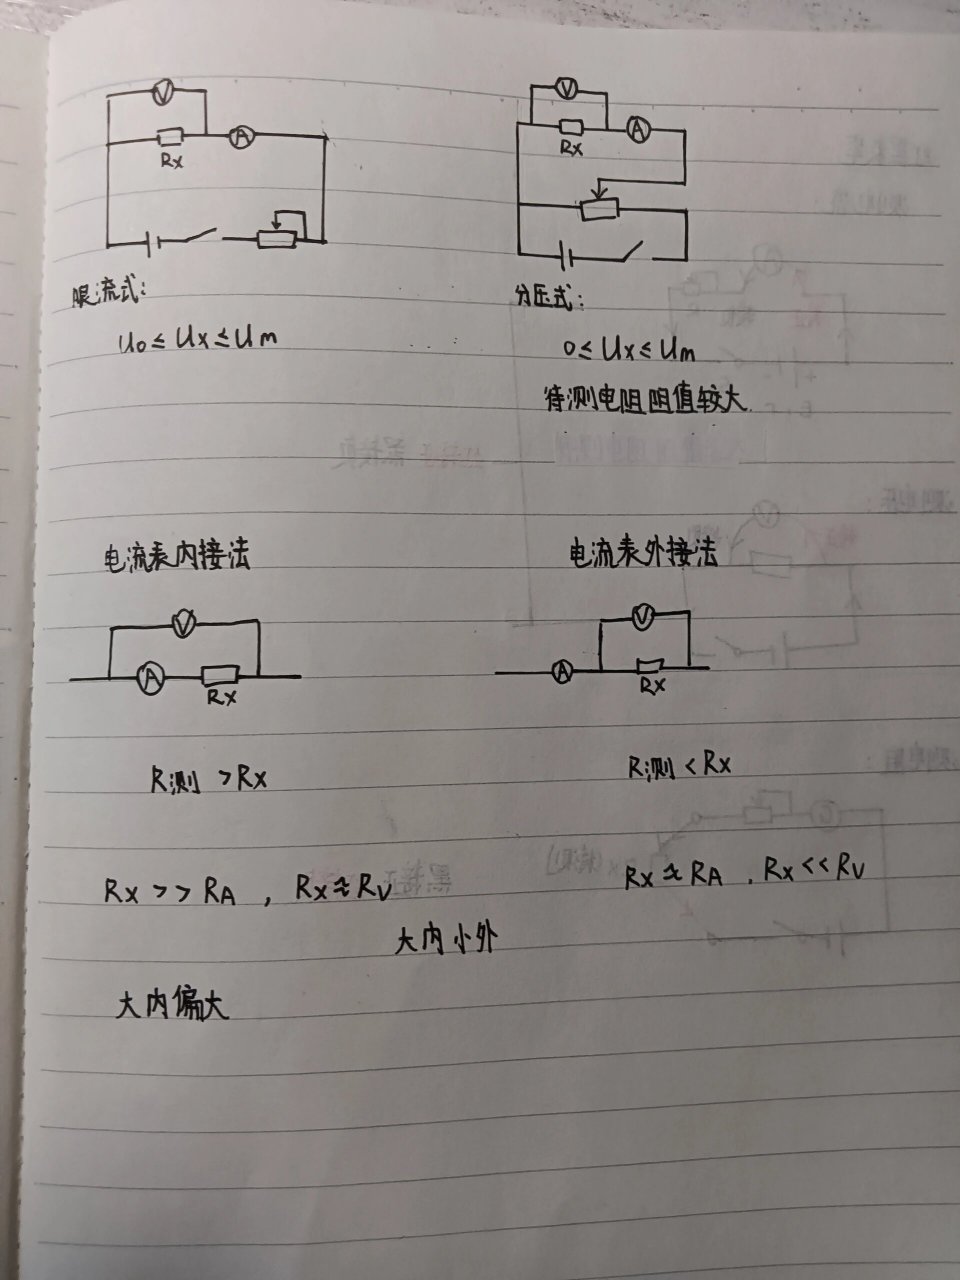 V
V
A
A
Rx
Rx
限流式:
分压式:
U₀≤Ux≤Um
0≤Ux≤Um
待测电阻阻值较大.
电流表内接法
电流表外接法
V
V
A
A
Rx
Rx
R测 >Rx
R测 <Rx
Rx >> RA , Rx≈RV
Rx≈RA . Rx<<RV
大内小外
大内偏大